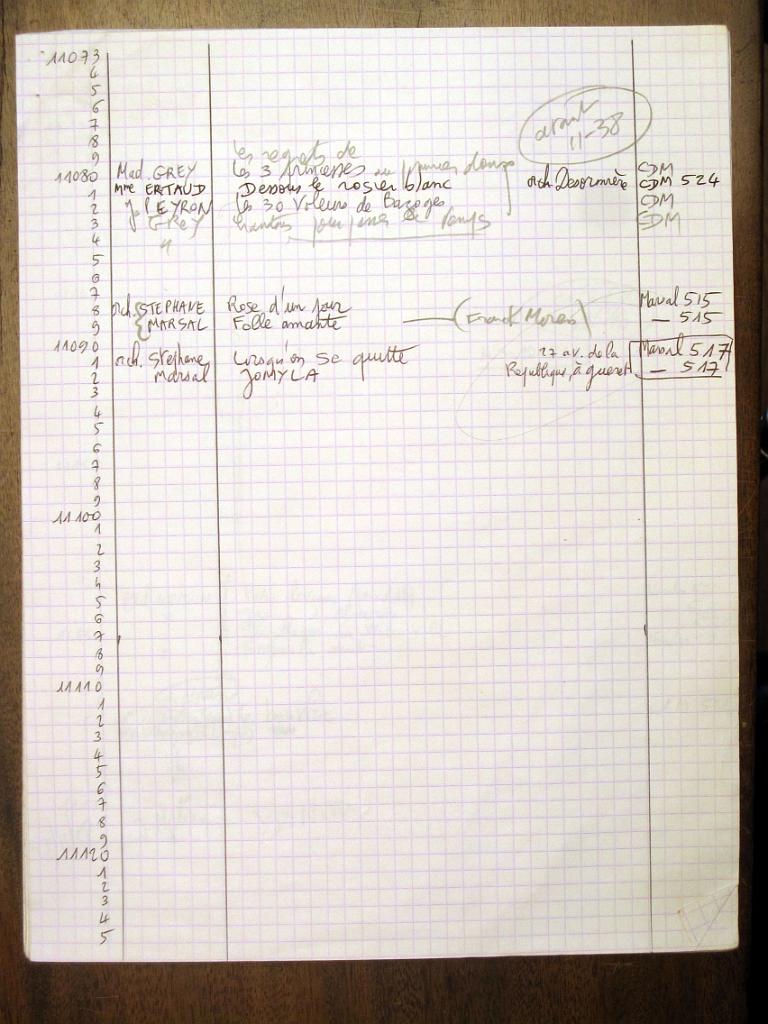 11073
4
5
6
7 avant
8 11-38
9 les regrets de
11080 Mad. GREY Les 3 princesses au pommier doux CDM
1 Mme ERTAUD Dessous le rosier blanc orch. Desormière CDM 524
2 J. PEYRON Les 30 Voleurs de Bazoges CDM
3 GREY chantons pour passer le temps CDM
4 "
5
6
7
8 orch. STEPHANE Rose d'un jour Marsal 515
9 MARSAL Folle amante (Franck ) — 515
11090
1 orch. Stephane Lorsqu'on se quitte 27 av. de la Marsal 517
2 Marsal JOMYLA République, à gueret — 517
3
4
5
6
7
8
9
11100
1
2
3
4
5
6
7
8
9
11110
1
2
3
4
5
6
7
8
9
11120
1
2
3
4
5